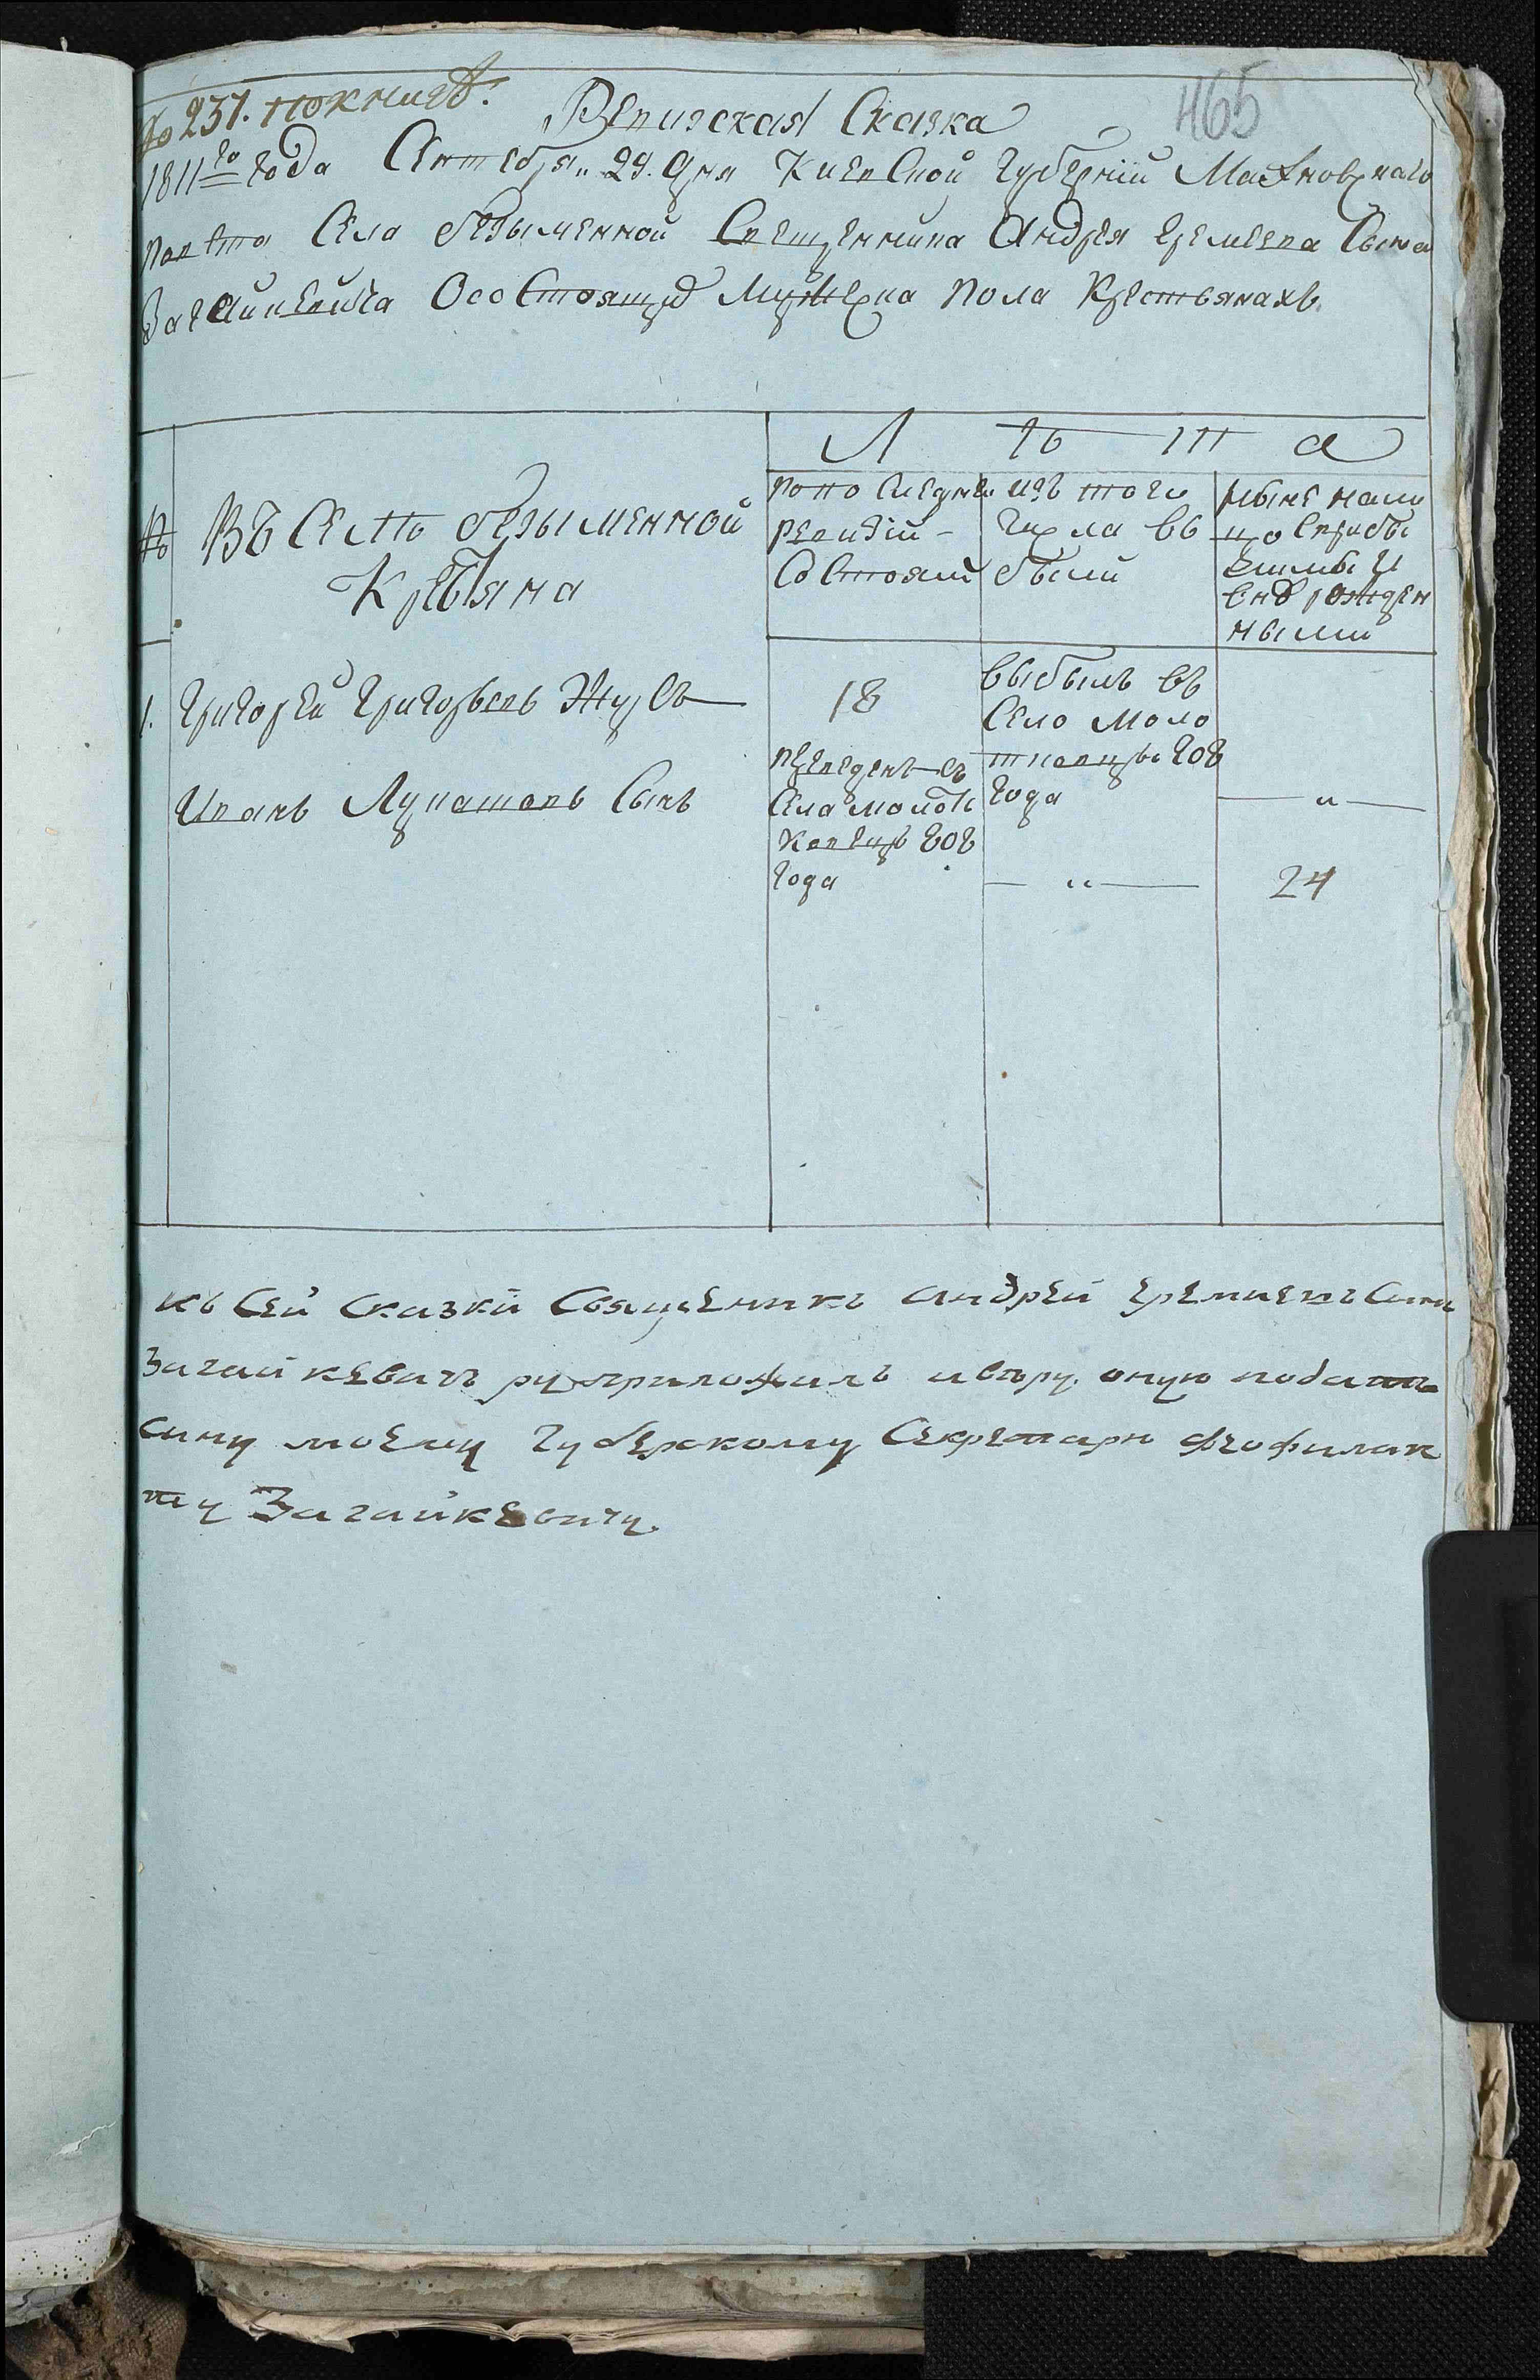 № 237. по книгѣ.
465
Ревизская Сказка
1811го года Октября 29. дня Киевской губернїи Махновскаго
повѣта Села безыменной Священника Андрея Еремеева Сына
Загайкевича О состоящих мужеска пола Крестьянахъ.
Л ѣ т а
№
Въ Селѣ безыменной
Крестьяна
по последней
ревизїи
Состояли
изъ того
числа вы
были
ныне нали
цо с прибы
лыми и
вновь рожден
ными
1. Григорей Григорьевъ Журъ
18
выбылъ въ
Село Моло
тковцы 808
года
Иванъ Лукашовъ Сынъ
переведенъ съ
Села Молот
ковецъ 808
года
24
къ Сей Сказки Священникъ Андрей Еремиевъ Сынъ
Загайкевичъ руку приложилъ и вѣрю оную подать
сину моему губерскому Секретарю Феофилак
ту Загайкевичу.